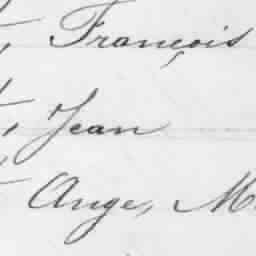 , François
, Jean
Ange, M